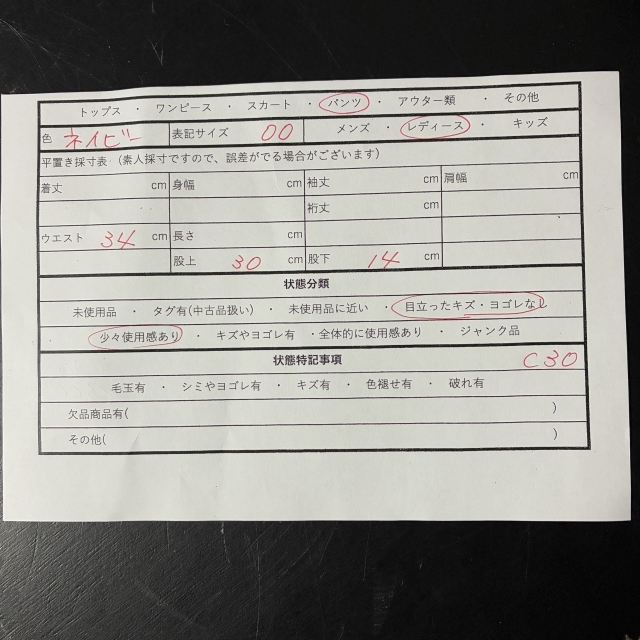 トップス ・ ワンピース ・ スカート ・ パンツ ・ アウター類 ・ その他
色 ネイビー 表記サイズ 00 メンズ ・ レディース ・ キッズ
平置き採寸表 (素人採寸ですので、誤差がでる場合がございます)
着丈 cm 身幅 cm 袖丈 cm 肩幅 cm
裄丈 cm
ウエスト 34 cm 長さ cm
股上 30 cm 股下 14 cm
状態分類
未使用品 ・ タグ有(中古品扱い) ・ 未使用品に近い ・ 目立ったキズ・ヨゴレなし
・ 少々使用感あり ・ キズやヨゴレ有 ・全体的に使用感あり ・ ジャンク品
状態特記事項 C30
毛玉有 ・ シミやヨゴレ有 ・ キズ有 ・ 色褪せ有 ・ 破れ有
欠品商品有( )
その他( )